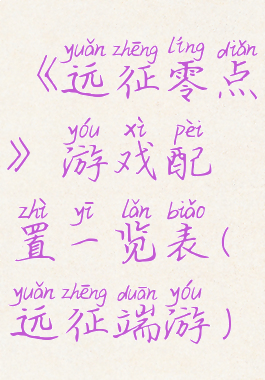 yuǎn zhēng líng diǎn
《远征零点
yóu xì pèi
》游戏配
zhì yī lǎn biǎo
置一览表(
yuǎn zhēng duān yóu
远征端游)